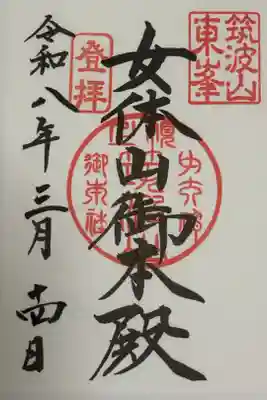 筑波山
東峯
女体山御本殿
登拝
令和八年三月十四日